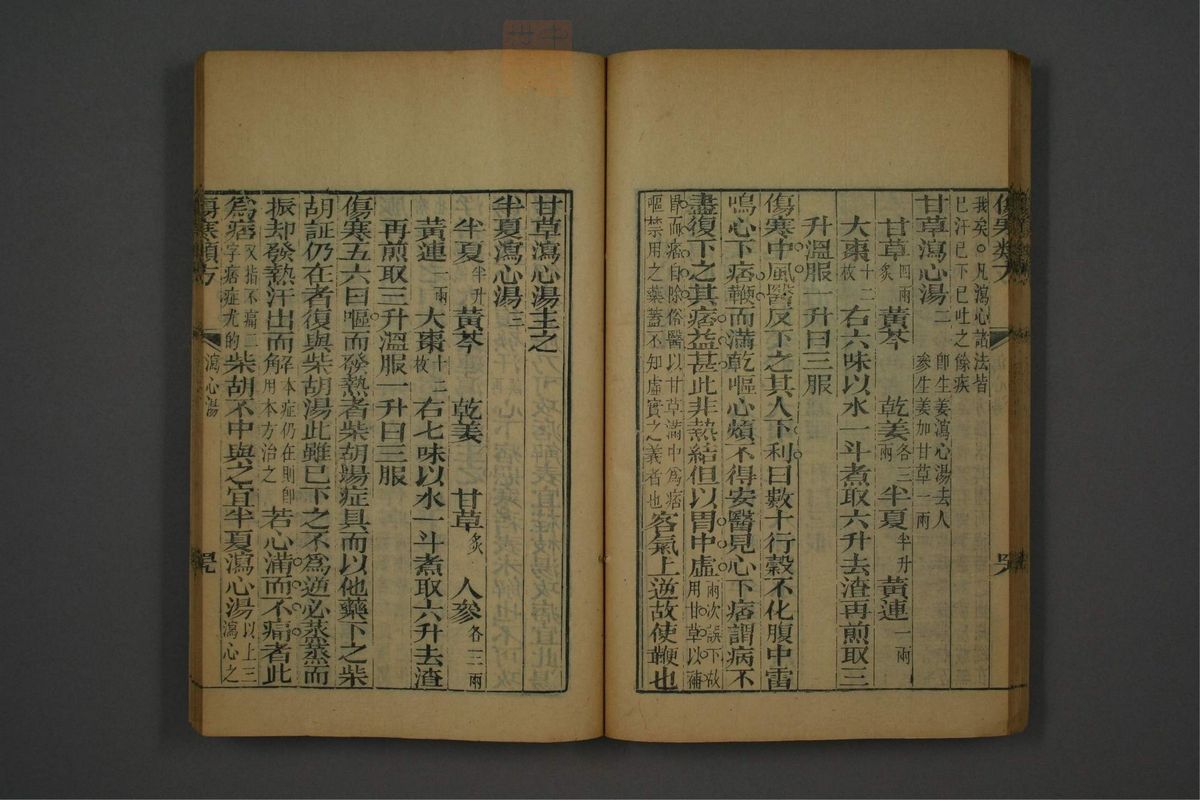 傷寒類方
我矣。凡瀉心諸法皆
已汗已下已吐之餘疾
甘草瀉心湯二 即生姜瀉心湯去人
參生姜加甘草一兩
甘草四兩炙 黃芩 乾姜各三兩 半夏半升 黃連一兩
大棗十二枚 右六味以水一斗煮取六升去渣再煎取三
升溫服一升日三服
傷寒中風醫反下之其人下利日數十行穀不化腹中雷
鳴心下痞鞕而滿乾嘔心煩不得安醫見心下痞謂病不
盡復下之其痞益甚此非熱結但以胃中虛兩次誤下故用甘草以補
胃而痞自除俗醫以甘草滿中為痞嘔禁用之藥蓋不知虛實之義者也客氣上逆故使鞕也
甘草瀉心湯主之
半夏瀉心湯三
半夏半升 黃芩 乾姜 甘草炙 人參各三兩
黃連一兩 大棗十二枚 右七味以水一斗煮取六升去渣
再煎取三升溫服一升日三服
傷寒五六日嘔而發熱者柴胡場症具而以他藥下之柴
胡証仍在者復與柴胡湯此雖已下之不為逆必蒸蒸而
振却發熱汗出而解本症仍在則卽用本方治之 若心滿而不痛者此
為痞又指不痛二字痞症尤的柴胡不中與之宜半夏瀉心湯以上三瀉心之
傷寒類方 瀉心湯